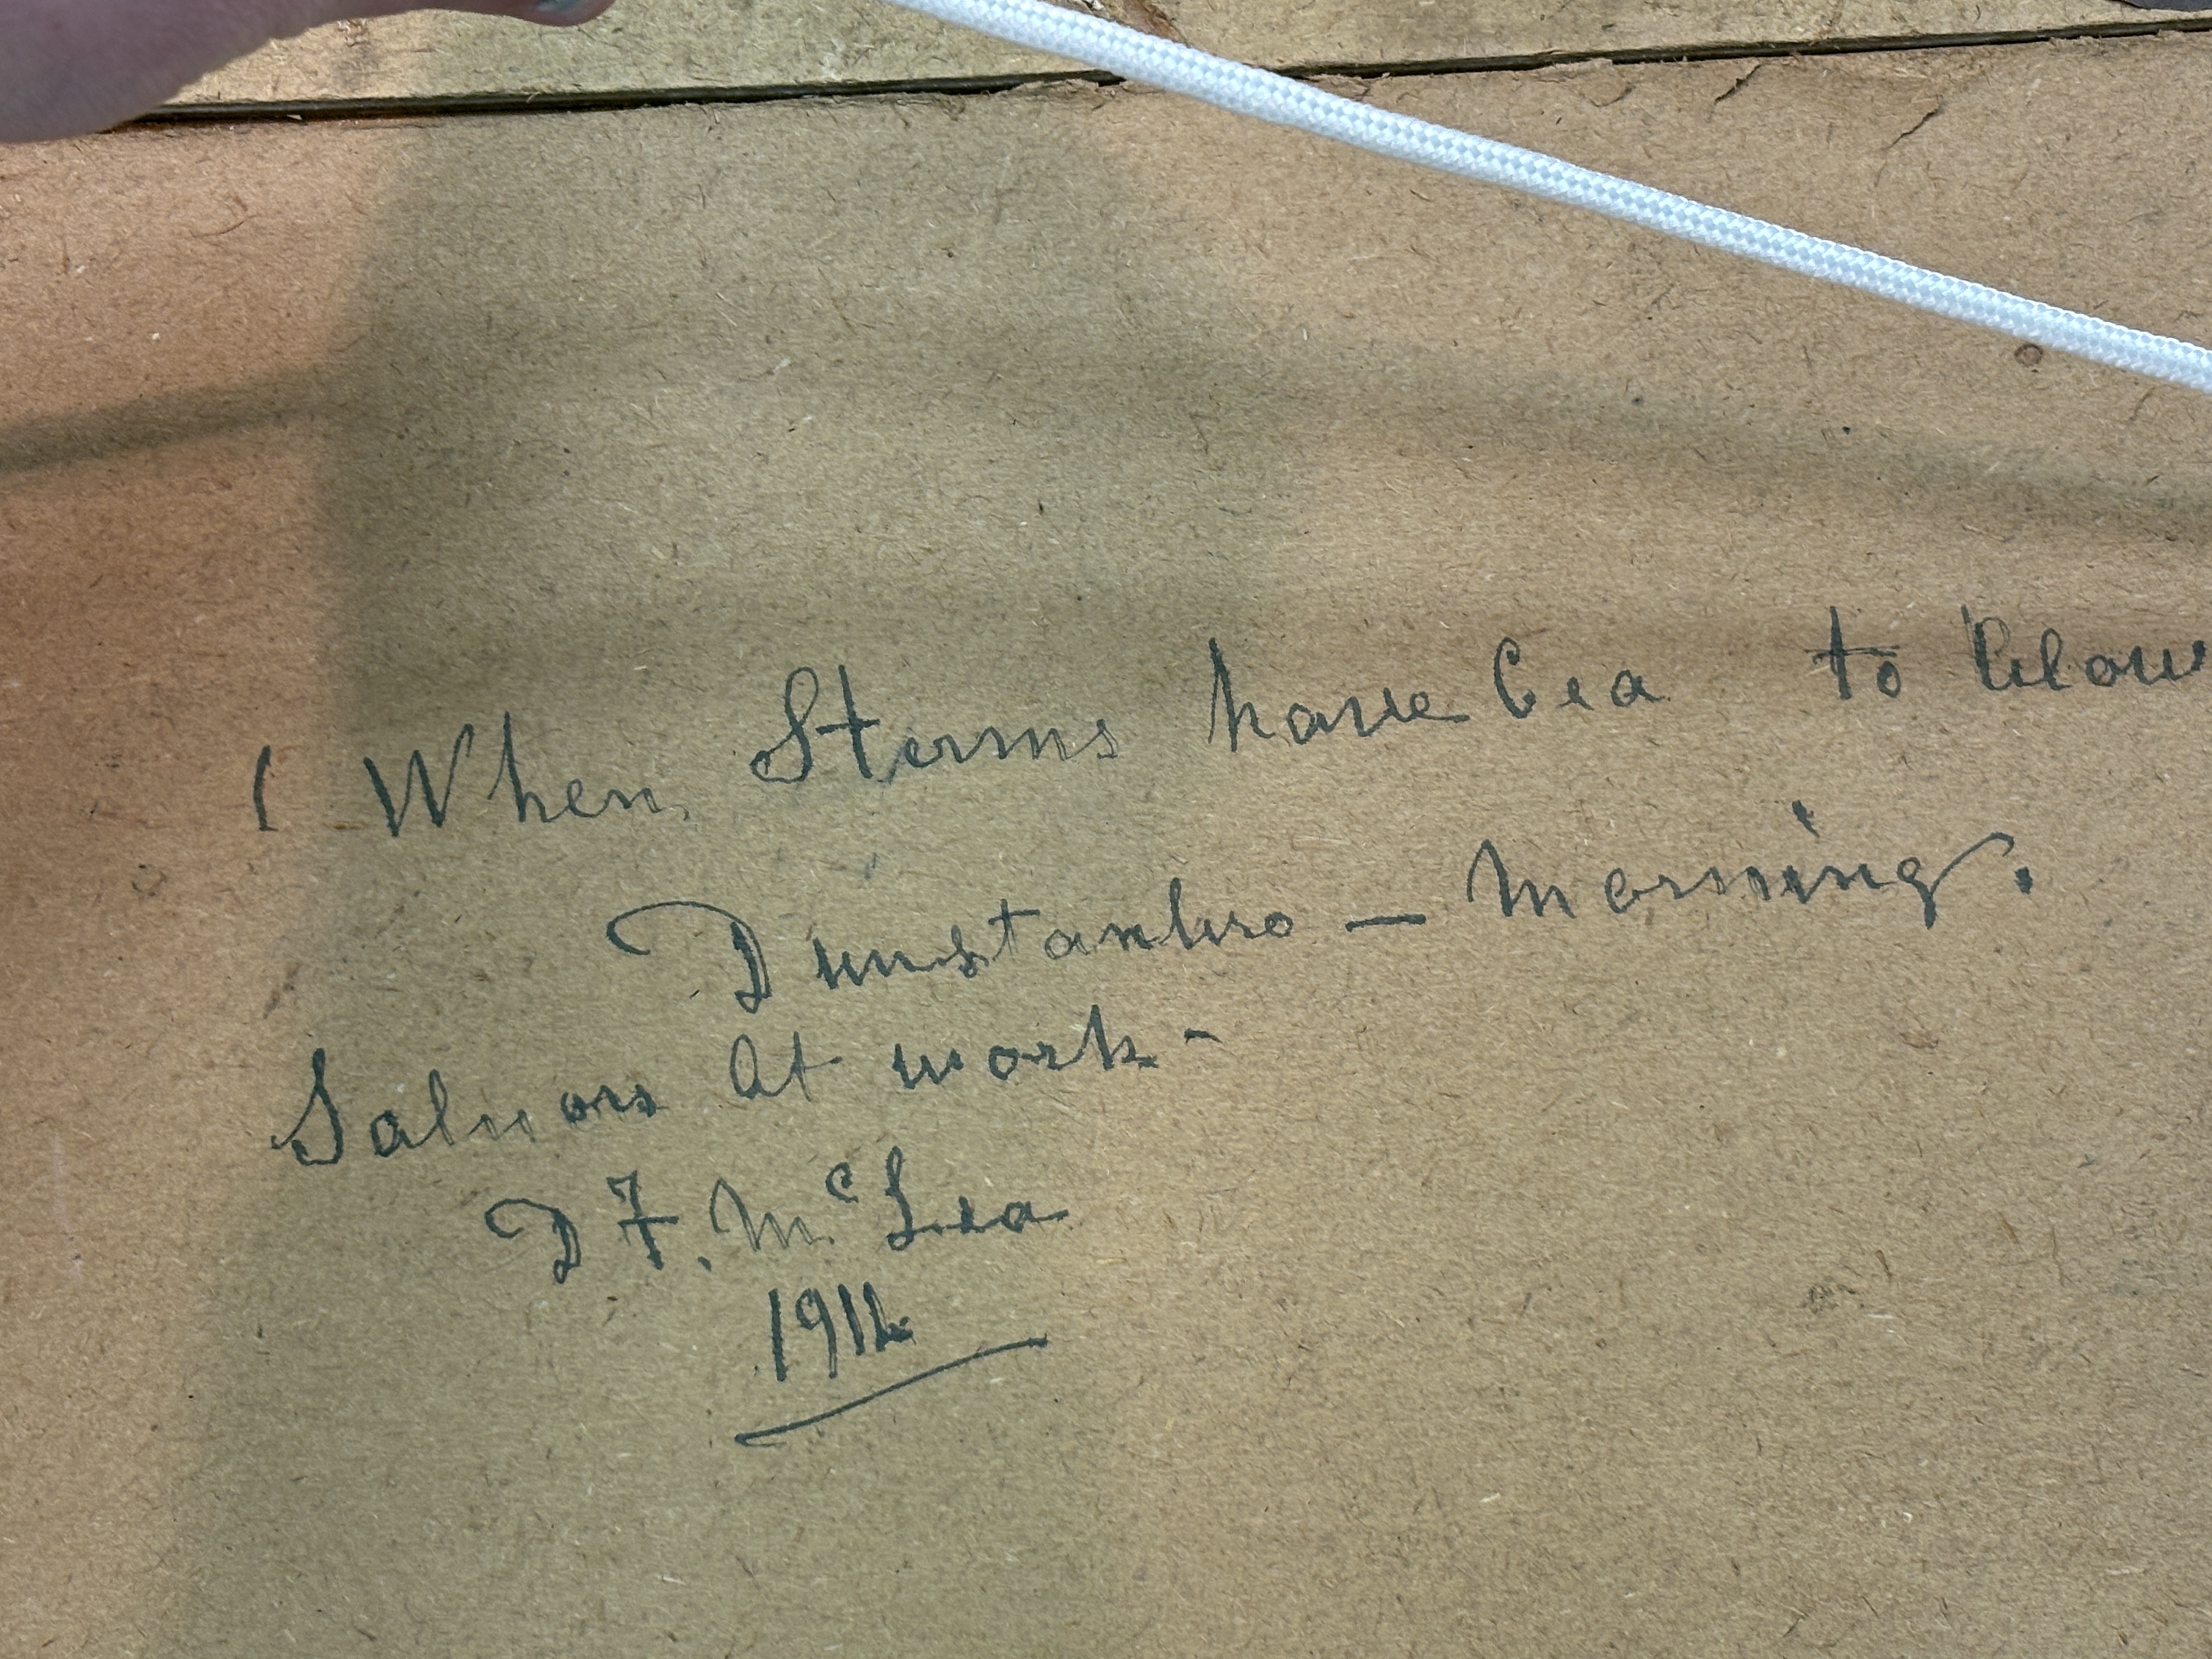 ( When Storms have Cea to blow
Dunstanbro — Morning.
Salvors At work -
D F. McLea
1914